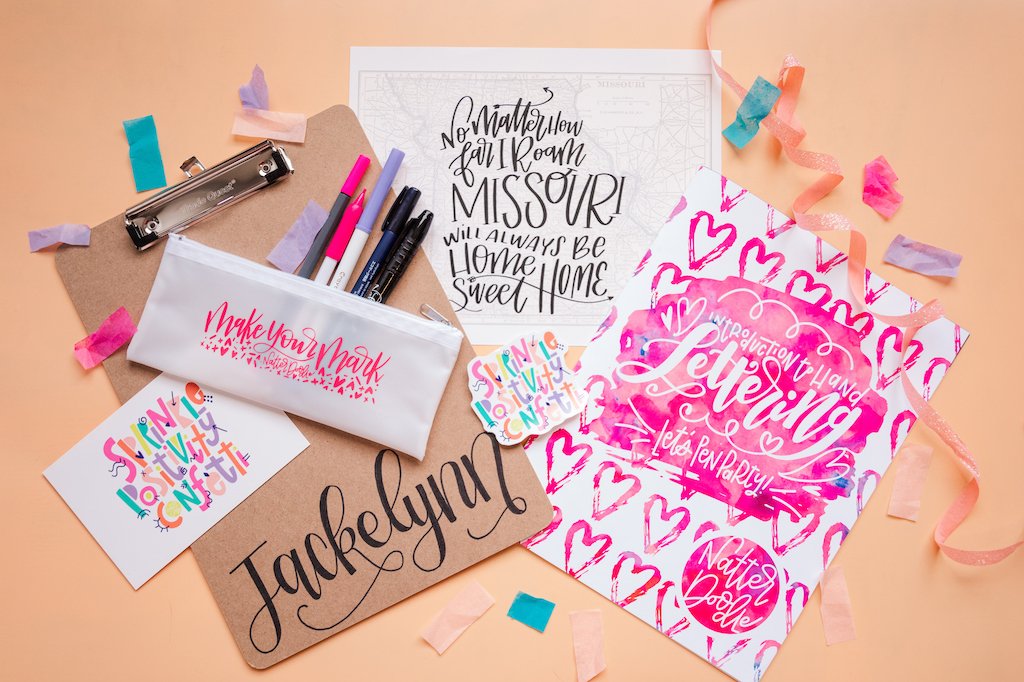 MISSOURI
No Matter How
far I Roam
MISSOURI
will always be
Home
Sweet Home
Make Your Mark
Natter Doodle
Sprinkle
Positivity
Confetti
Sprinkle
Positivity
Confetti
Jackelynn
Introduction to Hand
Lettering
Let's Pen Party!
Natter
Doodle